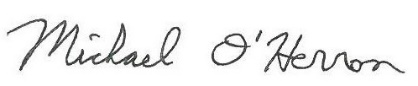 Michael O'Herron